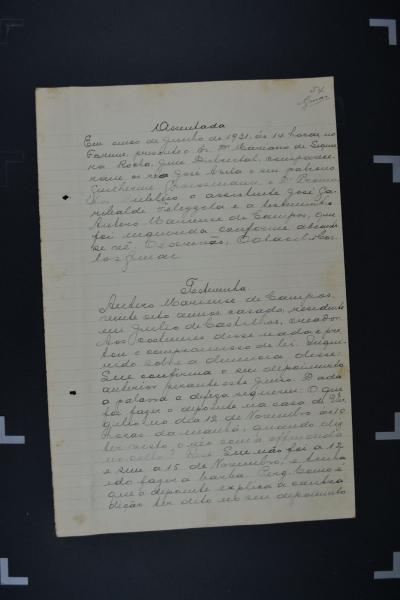 54
Assentada
Em cinco de Junho de 1931, ás 14 horas no
Forum, presente o Dr. Mariano de Siquei
ra Rocha, Juiz Districtal, comparece
ram o réo José e seu patrono
Guilherme e o Dr. Promo
tor Publico o assistente José Ga
ribaldi e a testemunha
Antero Marienese de Campos, que
foi inquirida conforme abaixo
se vê. O escrivão,
Testemunha
Antero Marienese de Campos,
vinte oito annos, casado, residente
em Julio de Castilhos, creador.
Aos costumes disse nada e pres
tou o compromisso de lei. Inqui
rido sobre a denuncia, disse:
Que confirma o seu depoimento
anterior perante este Juizo. Dada
a palavra a defeza requereu: O que
foi fazer o depoente na casa de Vir
gilio no dia 12 de Novembro ás 10
horas da manhã, quando diz
ter visto o réo com a offendida
no collo? Que não foi a 12
e sim a 15 de Novembro, e tinha
ido fazer a barba. Perg. Como é
que o depoente explica a contra
dicão ter dito no seu depoimento